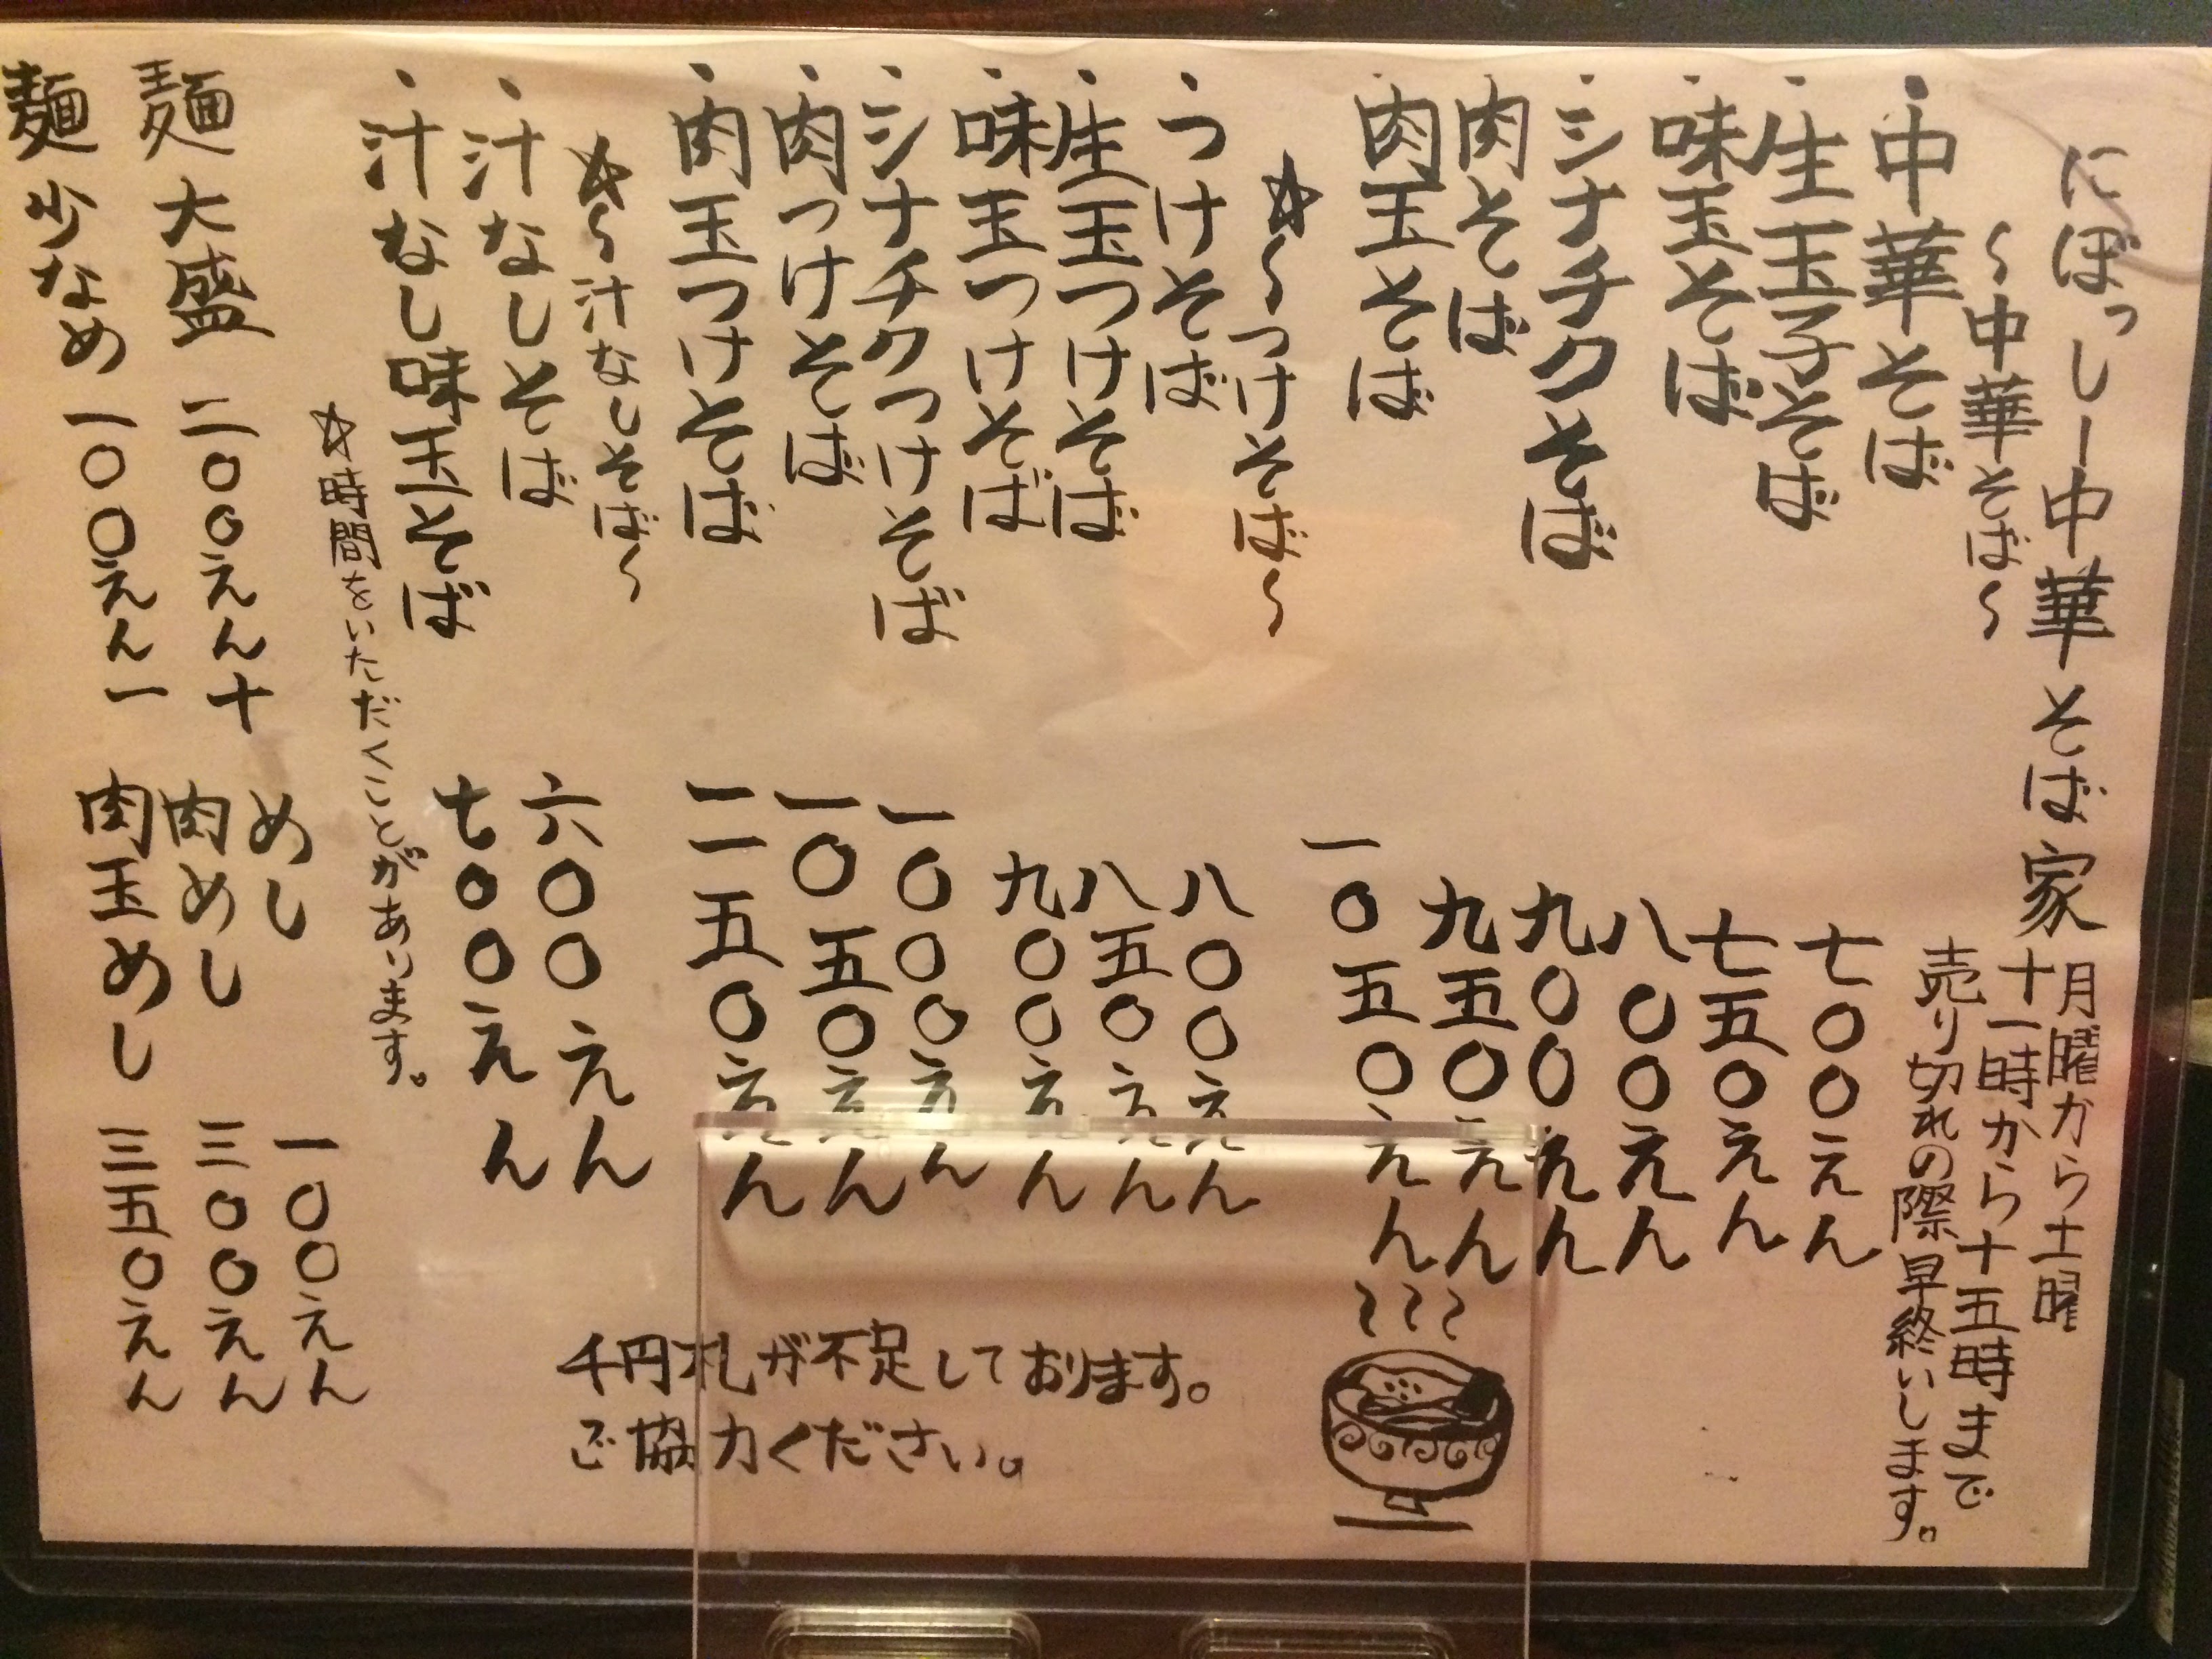 にぼっしー中華そば家
月曜から土曜
十一時から十五時まで
売り切れの際早終いします。
～中華そば～
・中華そば 七〇〇えん
・生玉子そば 七五〇えん
・味玉そば 八〇〇えん
・シナチクそば 九〇〇えん
・肉そば 九五〇えん
・肉玉そば 一〇五〇えん
☆～つけそば～
・つけそば 八〇〇えん
・生玉つけそば 八五〇えん
・味玉つけそば 九〇〇えん
・シナチクつけそば 一〇〇〇えん
・肉つけそば 一〇五〇えん
・肉玉つけそば 一一五〇えん
☆～汁なしそば～
・汁なしそば 六〇〇えん
・汁なし味玉そば 七〇〇えん
☆時間をいただくことがあります。
麺大盛 二〇〇えん十
麺少なめ 一〇〇えん一
めし 一〇〇えん
肉めし 三〇〇えん
肉玉めし 三五〇えん
千円札が不足しております。
ご協力ください。